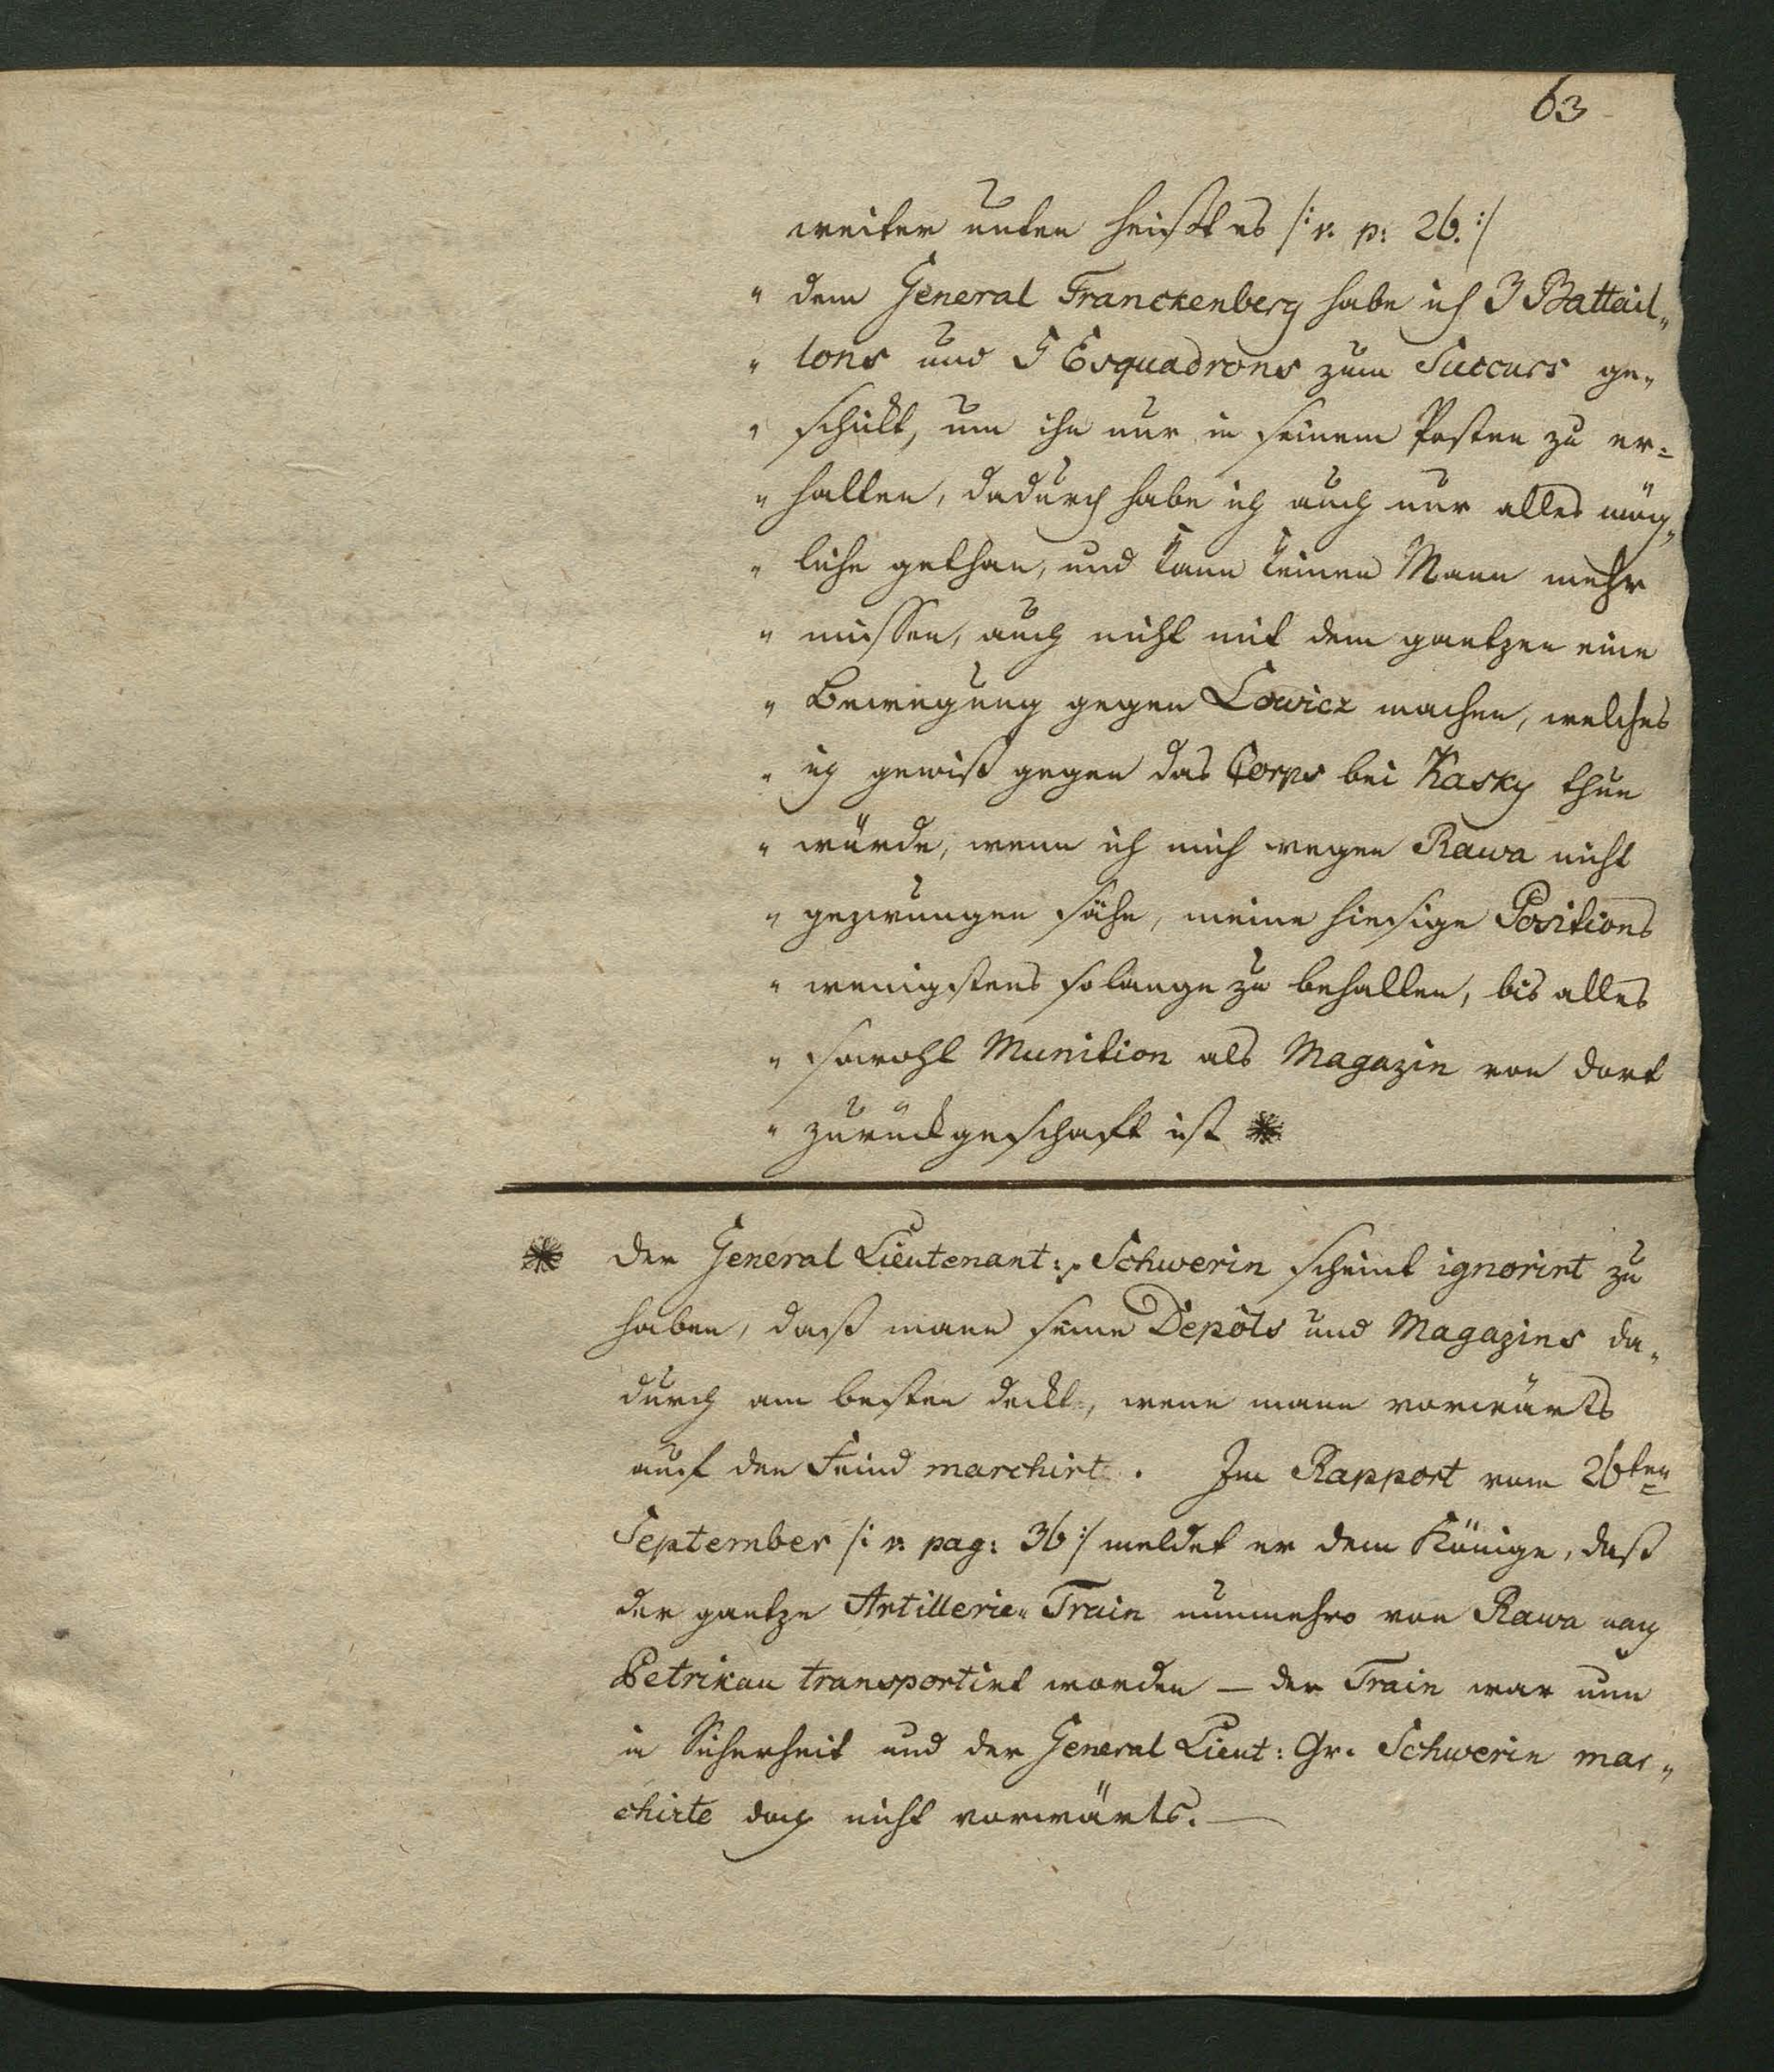 63
weiter unten heißt es /: v. p: 26. :/
" dem General Franckenberg habe ich 3 Battail„
" lons und 5 Esquadrons zum Succurs ge„
" schickt, um ihn nur in seinem Posten zu er=
" halten, dadurch habe ich auch nur alles mög„
" liche gethan, und kann keinen Mann mehr
" missen, auch nicht mit dem gantzen eine
" Bewegung gegen Lowicz machen, welches
" ich gewiß gegen das Corps bei Kasky thun
" würde, wenn ich mich wegen Rawa nicht
" gezwungen sähe, meine hiesige Positions
" wenigstens solange zu behalten, bis alles
" sowohl Munition als Magazin von dort
" zurückgeschaft ist *
* Der General Lieutenant: Schwerin scheint ignorirt zu
haben, daß mann seine Depôts und Magazins da„
durch am besten deckt, wenn mann vorwärts
auf den Feind marchirt. Im Rapport vom 26ten
September /: v. pag: 36 :/ meldet er dem Könige, daß
der gantze Artillerie„ Train nunmehro von Rawa nach
Petrikau transportirt worden — der Train war nun
in Sicherheit und der General Lieut: Gr. Schwerin mar„
chirte doch nicht vorwärts. —